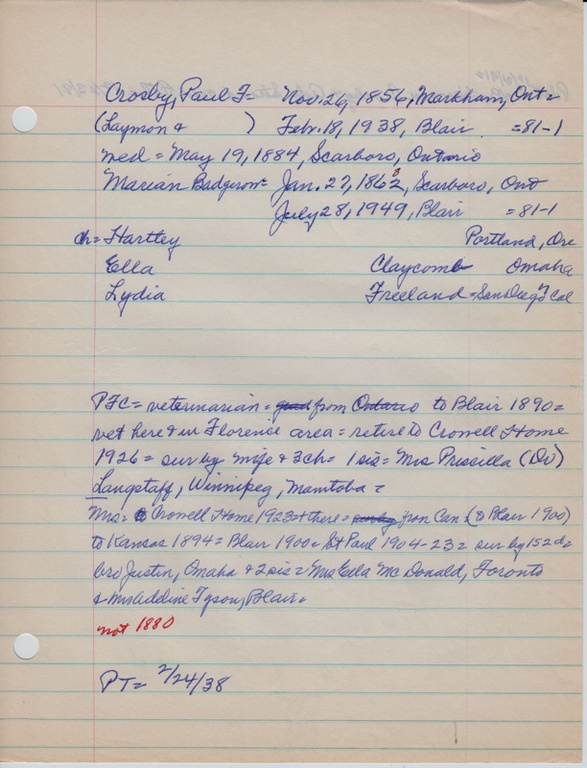 Crosby, Paul F= Nov. 26, 1856, Markham, Ont=
(Laymon &        ) Feb. 18, 1938, Blair =81-1
med = May 19, 1884, Scarboro, Ontario
Marian Badgerow= Jan. 27, 1862, Scarboro, Ont
July 28, 1949, Blair =81-1
ch= Hartley Portland, Ore
Ella Claycomb Omaha
Lydia Freeland = San Diego Cal
PFC = veterinarian = from Ontario to Blair 1890=
vet here & in Florence area = retire to Crowell Home
1926 = sur by wife & 3 ch = 1 sis = Mrs Priscilla (Dr)
Langstaff, Winnipeg, Manitoba =
Mrs = Crowell Home 1923 & there = from Can = (to Blair 1900)
to Kansas 1894 = Blair 1900 = St Paul 1904-23 = sur by
bro Justin, Omaha & 2 sis = Mrs Ella McDonald, Toronto
& Mrs Addine Tyson, Blair =
not 1880
PT= 2/24/38